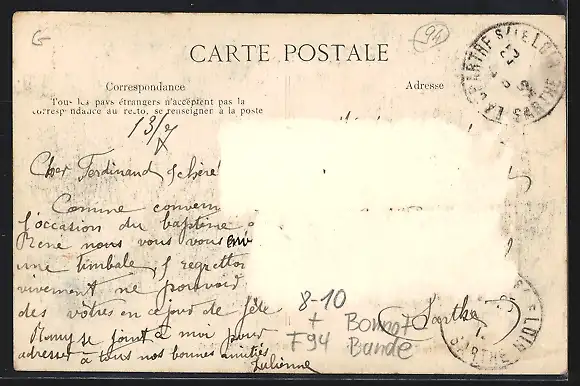 G
94
CARTE POSTALE
Correspondance
Adresse
Tous les pays étrangers n'acceptent pas la
correspondance au recto, se renseigner à la poste
13/7
Cher Ferdinand
Comme conven
l'occasion du baptême
René nous vous
une timbale, regretton
vivement ne pouvoir
des vôtres en ce jour de fête
Remy se joint à moi pour
adresser à tous nos bonnes amitiés
Julienne
(Sarthe)
8-10
+
F94
Bonnot
Bande
SARTHE
SARTHE